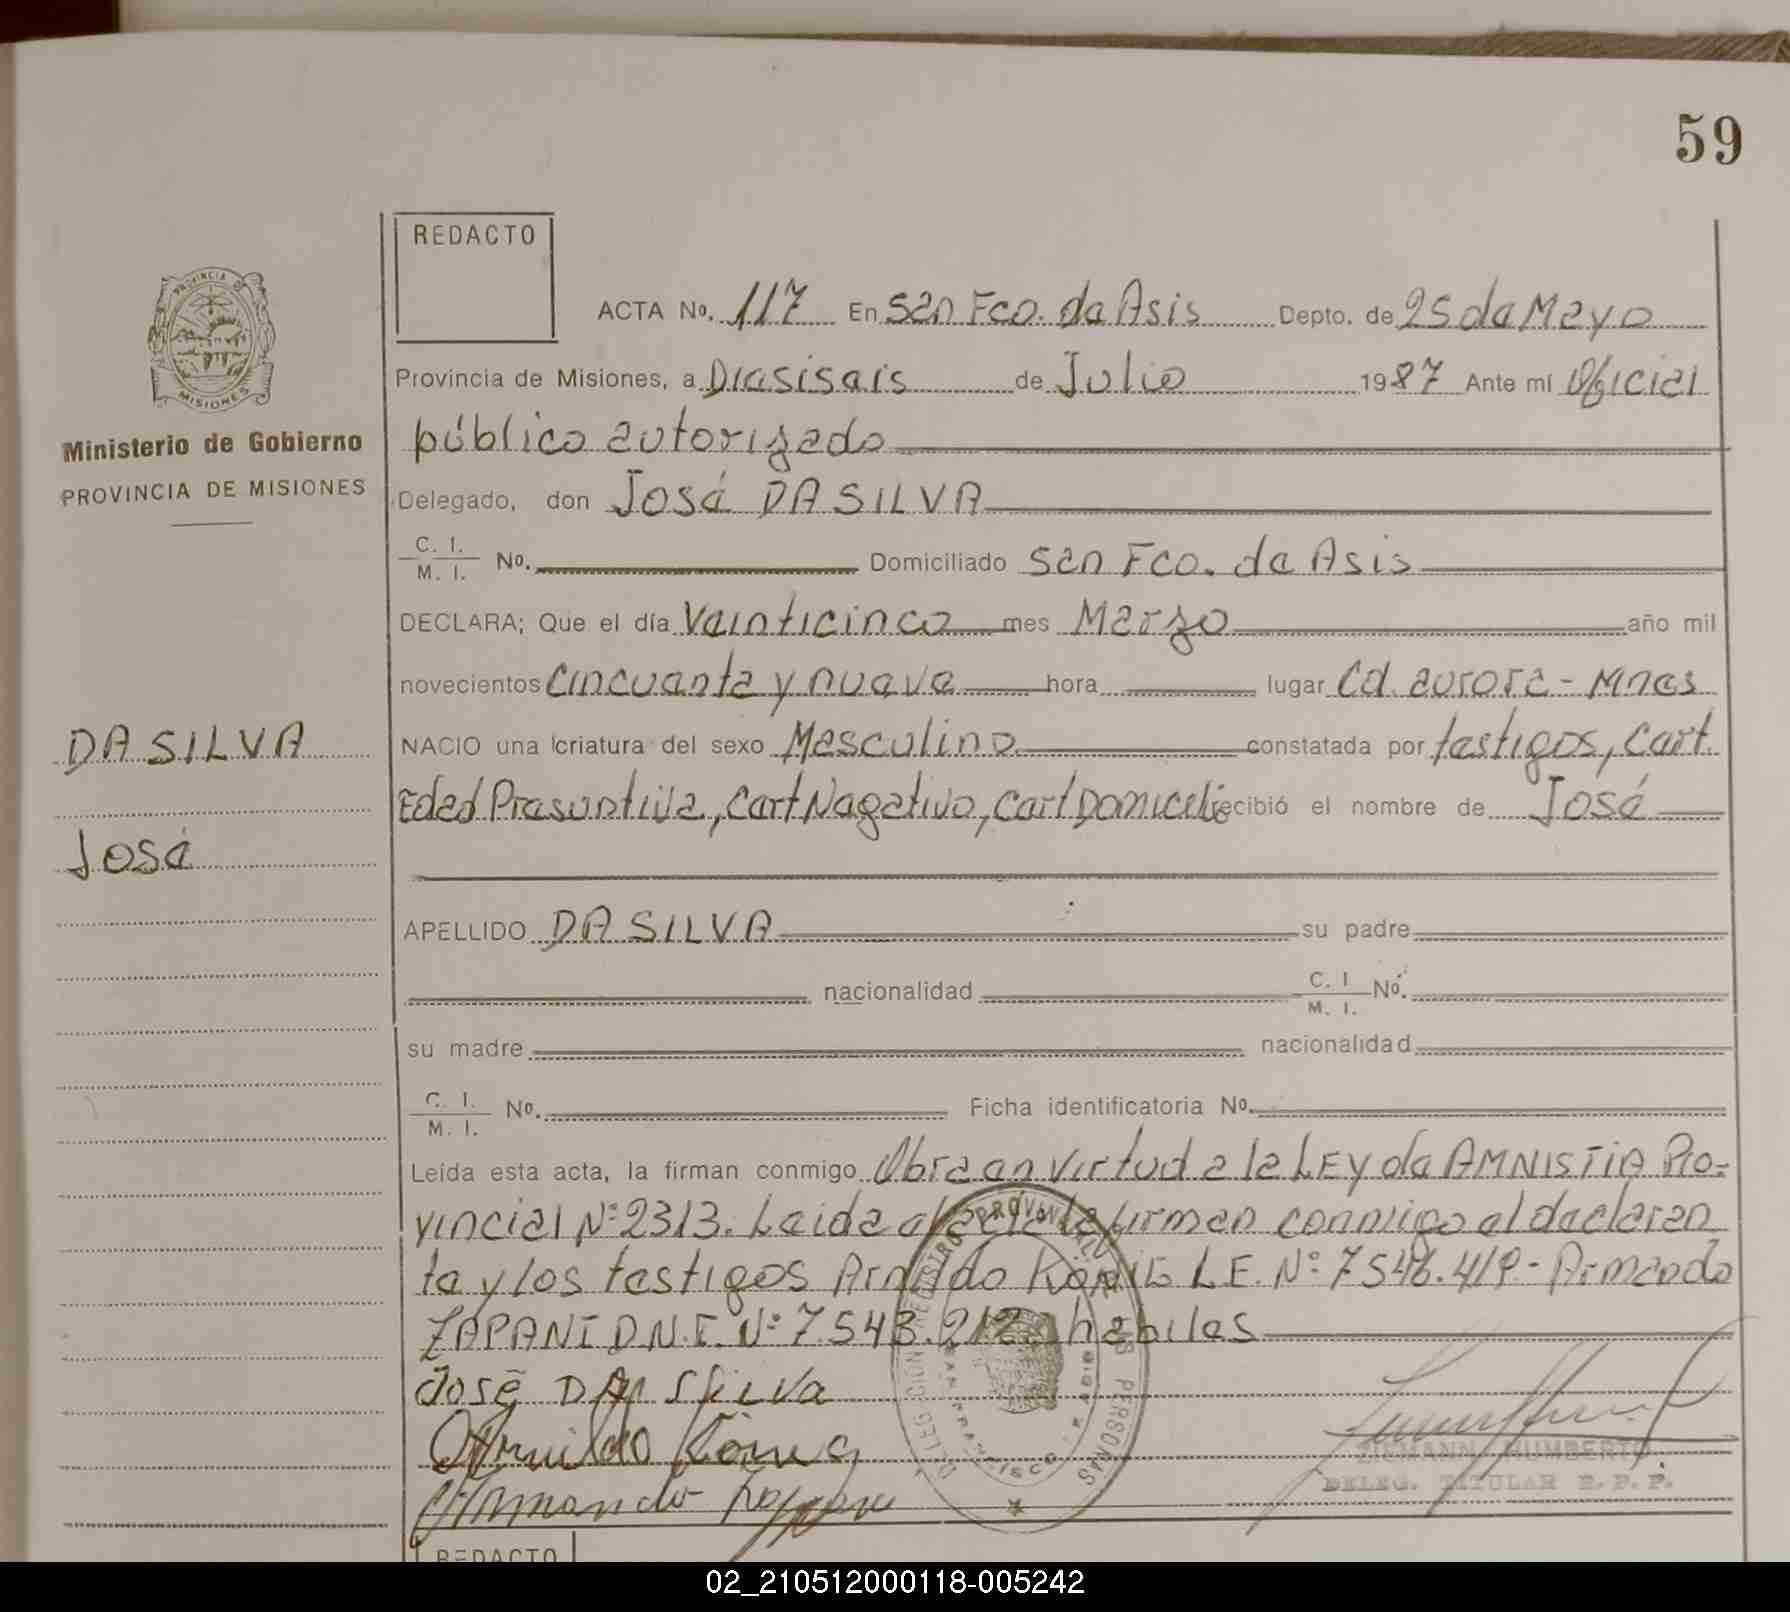 59
REDACTO
ACTA No. 117 En San Fco. de Asis Depto. de 25 de Mayo
Provincia de Misiones, a Dieciseis de Julio 1987 Ante mí Oficial
público autorizado
Delegado, don José DA SILVA
C. I.
M. I. No. Domiciliado San Fco. de Asis
DECLARA; Que el día Veinticinco mes Marzo año mil
novecientos cincuenta y nueve hora lugar Cd. aurora - Mnes
NACIO una criatura del sexo Masculino constatada por testigos, Cert.
Edad Presuntiva, Cert Negativo, Cert Domicilio recibió el nombre de José
APELLIDO DA SILVA su padre
nacionalidad C. I.
M. I. No.
su madre nacionalidad
C. I.
M. I. No. Ficha identificatoria No.
Leída esta acta, la firman conmigo Obra en virtud a la LEY de AMNISTIA Pro-
vincial Nº 2313. Leida el acta la firman conmigo el declaran
te y los testigos Arnildo König L.E. Nº 7546.419.- Armando
ZAPANI D.N.I. Nº 7.543.212 habiles
José DA Silva
Arnildo König
Armando
ZIEMANN HUMBERTO
DELEG. TITULAR R. P. P.
DELEGACION REGISTRO PROVINCIAL DE LAS PERSONAS
SAN FRANCISCO DE ASIS
PROVINCIA DE
MISIONES
Ministerio de Gobierno
PROVINCIA DE MISIONES
DA SILVA
José
REDACTO
02_210512000118-005242